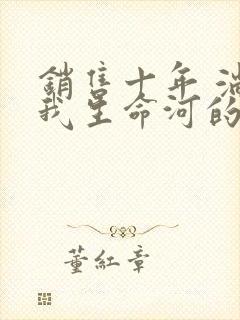 銷售十年 淌
我生命河的
董紅章